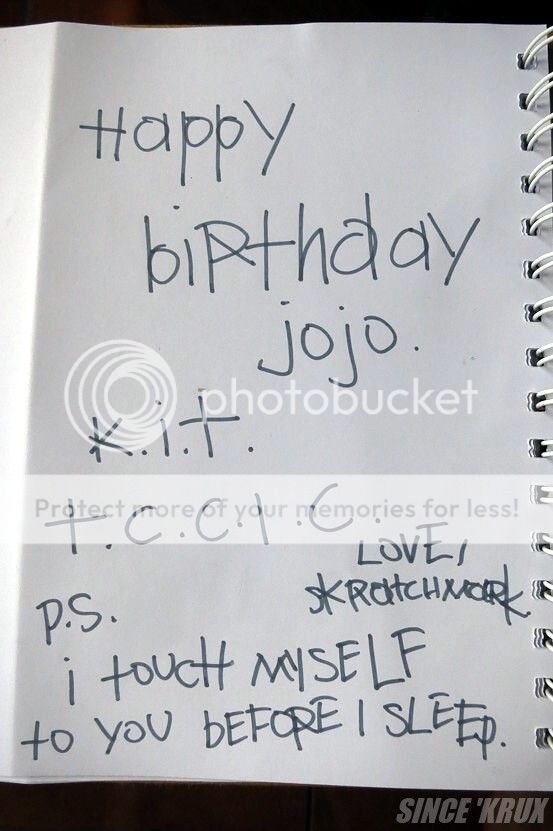 Happy
birthday
jojo.
photobucket
K.i.t.
Protect more of your memories for less!
t.c.c.i.c.
LOVE,
SKRATCHMARK
P.S.
i touch MYSELF
to YOU BEFORE I SLEEP.
SINCE 'KRUX